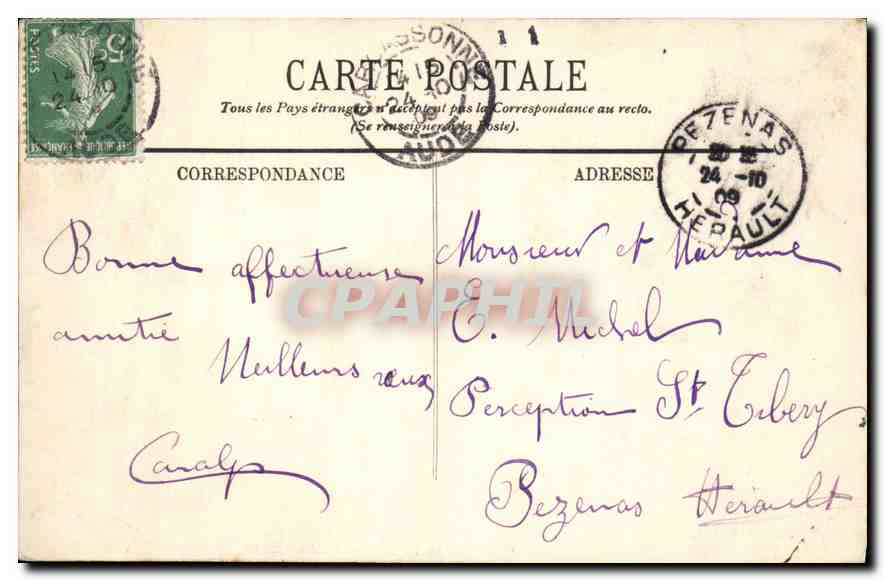 CARTE POSTALE
Tous les Pays étrangers n'acceptent pas la Correspondance au recto.
(Se renseigner à la Poste).
5c
POSTES
REPUBLIQUE FRANÇAISE
CARCASSONNE
24 10
09
AUDE
PEZENAS
24 -10
09
HERAULT
CORRESPONDANCE
Bonne affectueuse
amitié
Meilleurs vœux
ADRESSE
Monsieur et Madame
E. Michel
Perception St Tibery
Pezenas Hérault
CPAPHIL